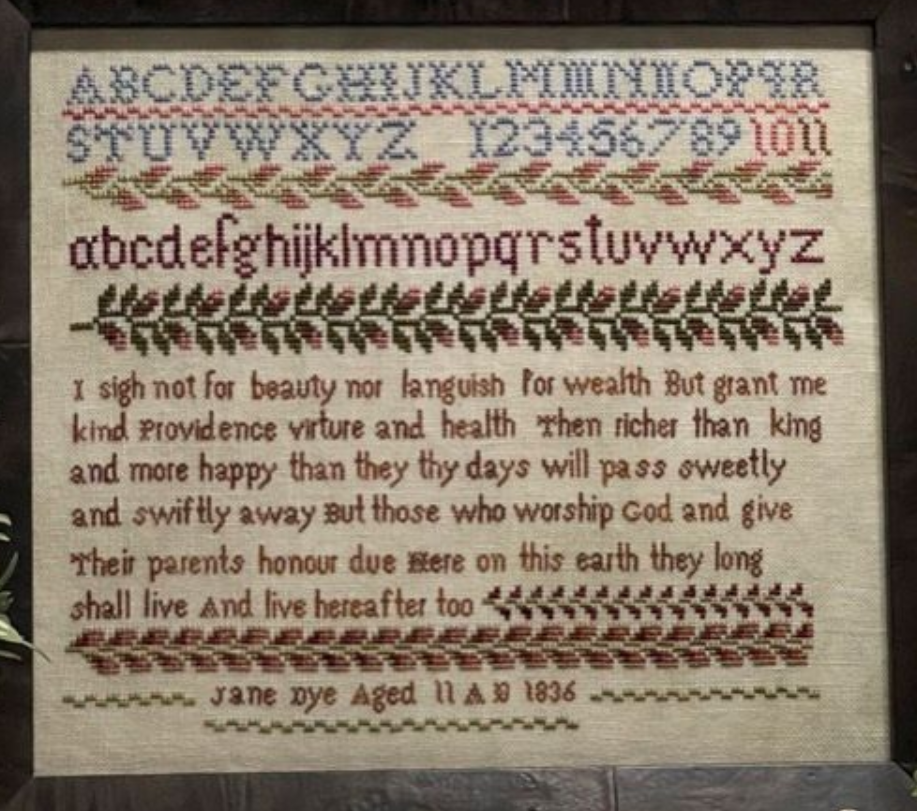 ABCDEFGHIJKLMMNNOPQR
STUVWXYZ 1234567891011
abcdefghijklmnopqrstuvwxyz
I sigh not for beauty nor languish for wealth But grant me
kind Providence virture and health Then richer than king
and more happy than they thy days will pass sweetly
and swiftly away But those who worship God and give
Their parents honour due Here on this earth they long
shall live And live hereafter too
Jane Dye Aged 11 A D 1836